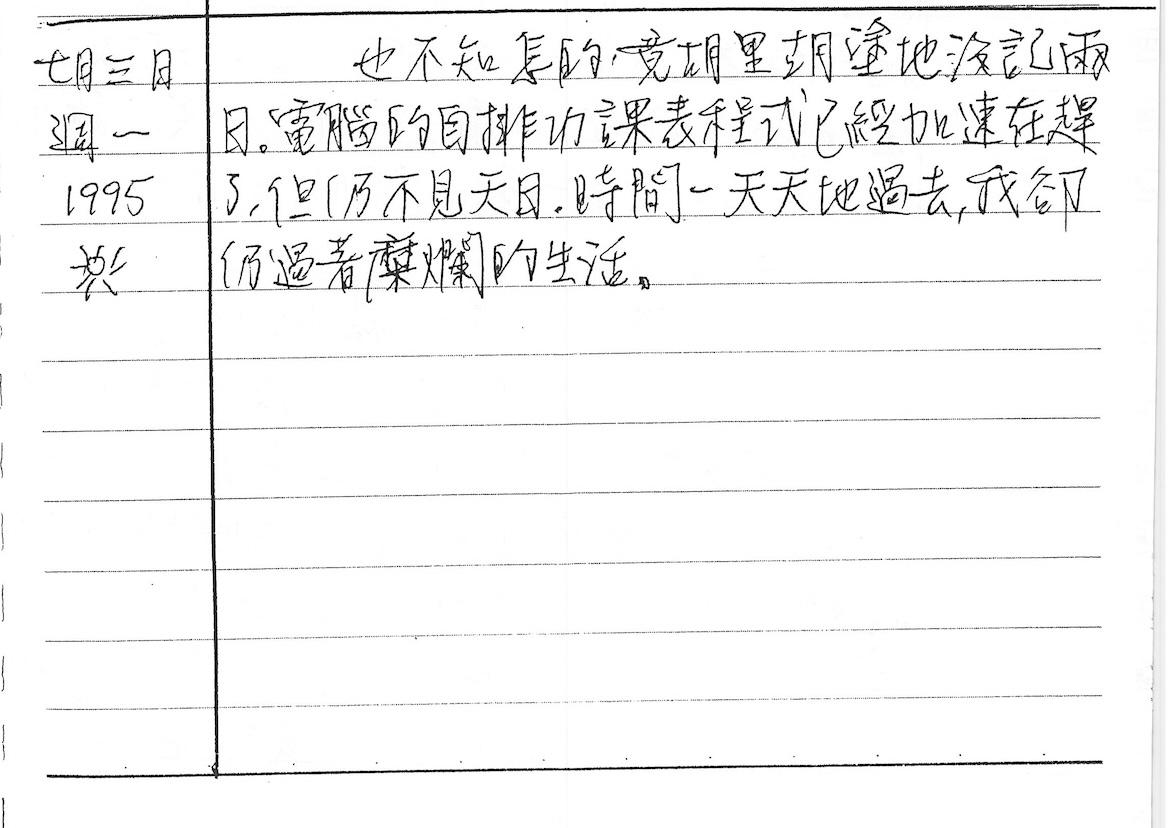 七月三日
週一
1995
也不知怎的,竟胡里胡塗地沒記兩
日。電腦的自排功課表程式已經加速在趕
了,但仍不見天日.時間一天天地過去,我卻
仍過著糜爛的生活。